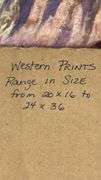 Western PRINTS
Range in SIZE
from 20 x 16 to
24 x 36